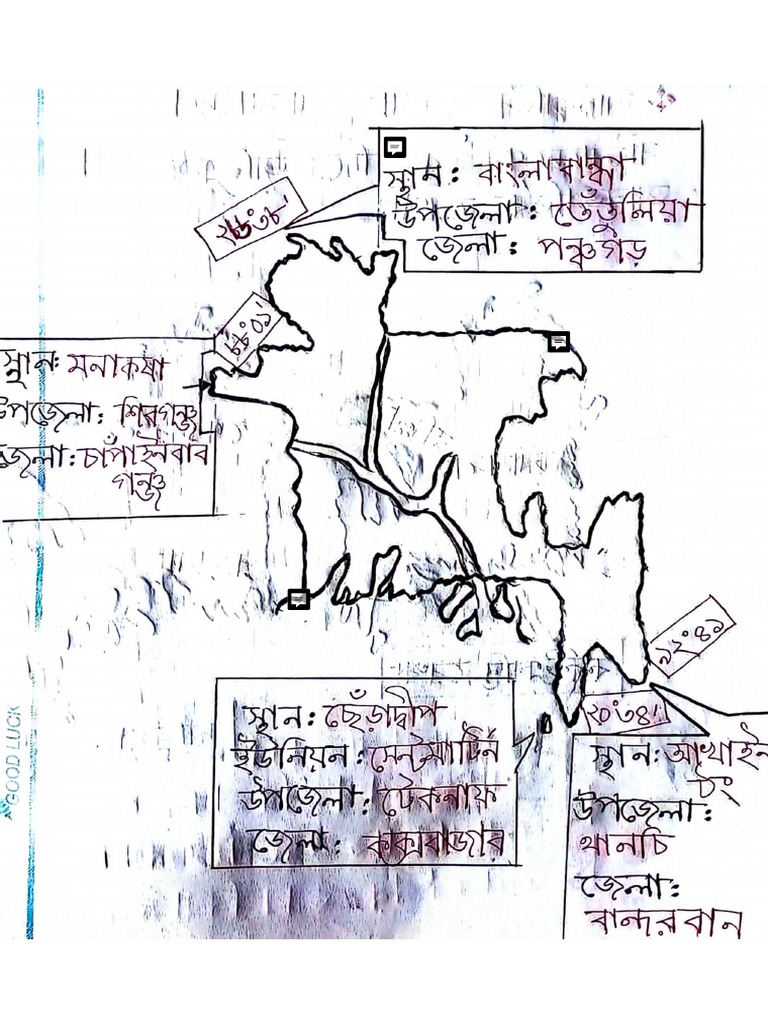 স্থান: বাংলাবান্ধা
উপজেলা: তেঁতুলিয়া
জেলা: পঞ্চগড়
২৬°৩৮'
৮৮°০১'
স্থান: মনাকষা
উপজেলা: শিবগঞ্জ
জেলা: চাঁপাইনবাব
গঞ্জ
৯২°৪১'
২০°৩৪'
স্থান: ছেঁড়াদ্বীপ
ইউনিয়ন: সেন্টমার্টিন
উপজেলা: টেকনাফ
জেলা: কক্সবাজার
স্থান: আখাইন
ঠং
উপজেলা:
থানচি
জেলা:
বান্দরবান
GOOD LUCK